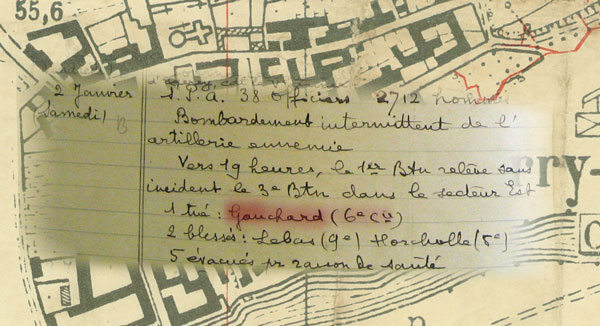 55,6
2 Janvier
Samedi
S.P.A. 38 Officiers 2712 hommes
Bombardement intermittent de l'
artillerie ennemie
Vers 19 heures, le 1er Btn relève sans
incident le 3e Btn dans le secteur Est
1 tué : Gouchard (6e Cie)
2 blessés : Lebas (9e) Horcholle (5e)
5 évacués pr raison de santé
rry-
p